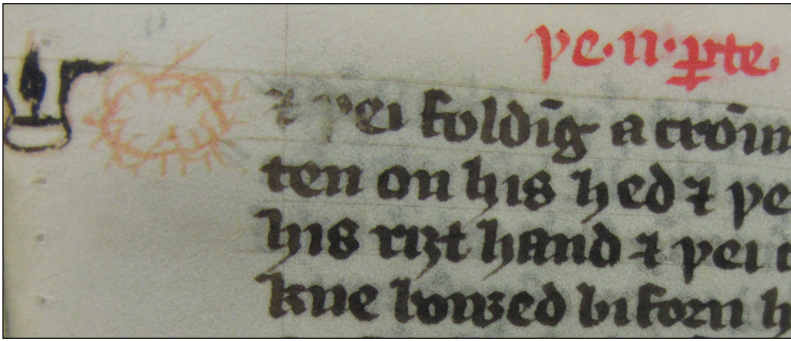 þe·ii·ꝑte
⁊ þei foldīg a croūn
ten on his hed ⁊ þe
his riȝt hand ⁊ þei
kne bowed biforn h